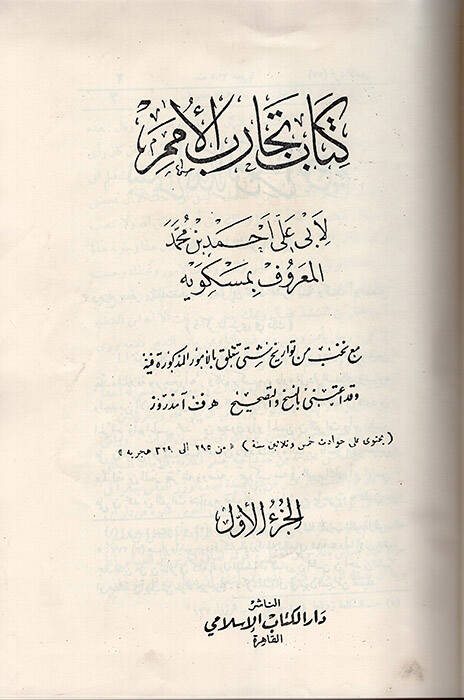 كتاب تجارب الأمم
لأبي علي أحمد بن محمد
المعروف بمسكويه
مع نخب من تواريخ شتى تتعلق بالأمور المذكورة فيه
وقد اعتنى بالنسخ والتصحيح هـ . ف . آمدروز
( يحتوى على حوادث خمس وثلاثين سنة ) « من ٢٩٥ الى ٣٢٩ هجرية »
الجزء الأول
الناشر
دار الكتاب الإسلامي
القاهرة